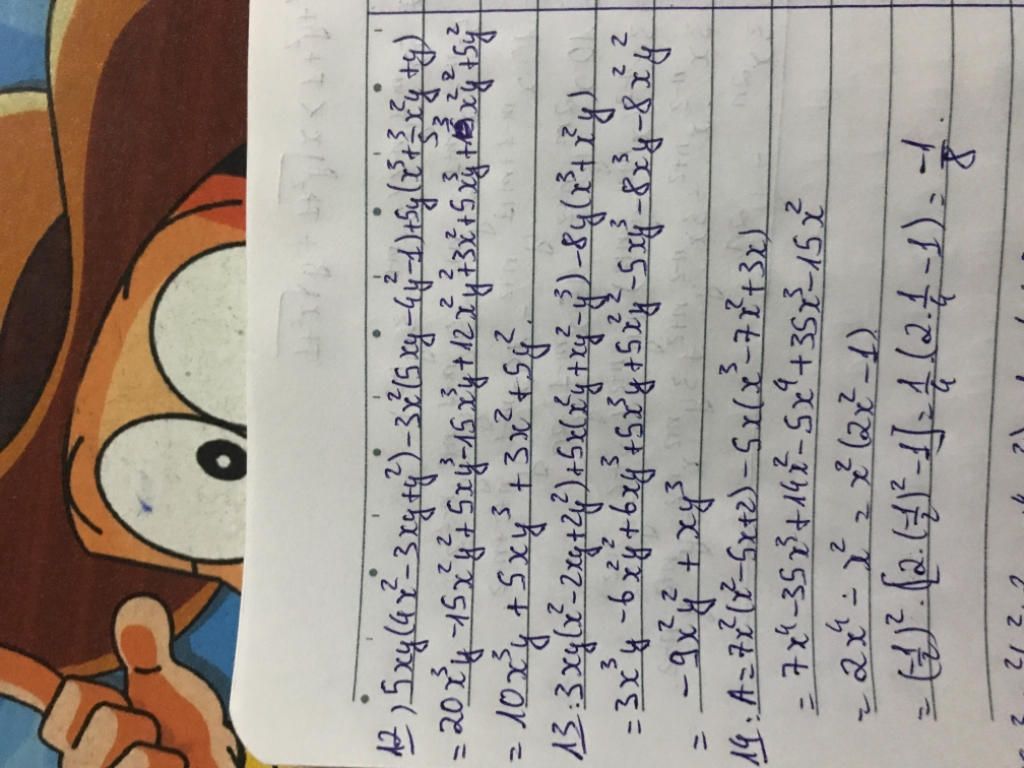 12) 5xy(4x² - 3xy + y²) - 3x²(5xy - 4y² - 1) + 5y(x³ + 3/5 x²y + y)
= 20x³y - 15x²y² + 5xy³ - 15x³y + 12x²y² + 3x² + 5x³y + 3x²y² + 5y²
= 10x³y + 5xy³ + 3x² + 5y².
13: 3xy(x² - 2xy + 2y²) + 5x(x²y + xy² - y³) - 8y(x³ + x²y)
= 3x³y - 6x²y² + 6xy³ + 5x³y + 5x²y² - 5xy³ - 8x³y - 8x²y²
= -9x²y² + xy³
14: A = 7x²(x² - 5x + 2) - 5x(x³ - 7x² + 3x)
= 7x⁴ - 35x³ + 14x² - 5x⁴ + 35x³ - 15x²
= 2x⁴ - x² = x²(2x² - 1)
= (-1/2)² . [2.(-1/2)² - 1] = 1/4 . (2.1/4 - 1) = -1/8.